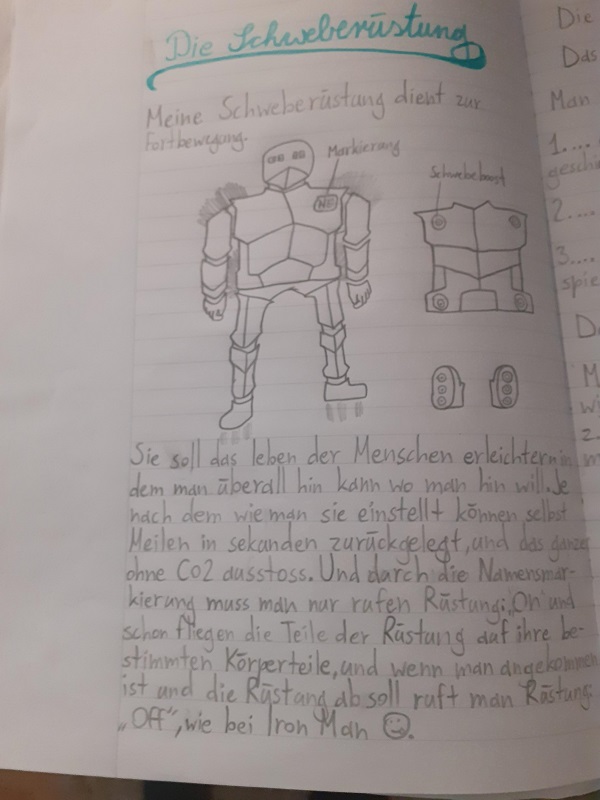 Die Schweberüstung
Meine Schweberüstung dient zur
Fortbewegung.
Markierung
Schwebeboost
Sie soll das leben der Menschen erleichtern in
dem man überall hin kann wo man hin will. Je
nach dem wie man sie einstellt können selbst
Meilen in sekunden zurückgelegt, und das ganze
ohne CO2 ausstoss. Und durch die Namensmar-
kierung muss man nur rufen Rüstung: „On" und
schon fliegen die Teile der Rüstung auf ihre be-
stimmten Körperteile, und wenn man angekommen
ist und die Rüstung ab soll ruft man Rüstung:
„Off", wie bei Iron Man
Die
Das
Man
1....
2....
3....
spie
M
wi
2.